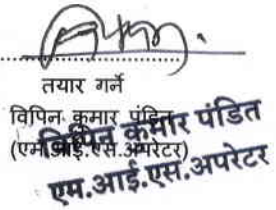 तयार गर्ने
विपिन कुमार पंडित
(एम.आई.एस.अपरेटर)
विपिन कुमार पंडित
एम.आई.एस.अपरेटर